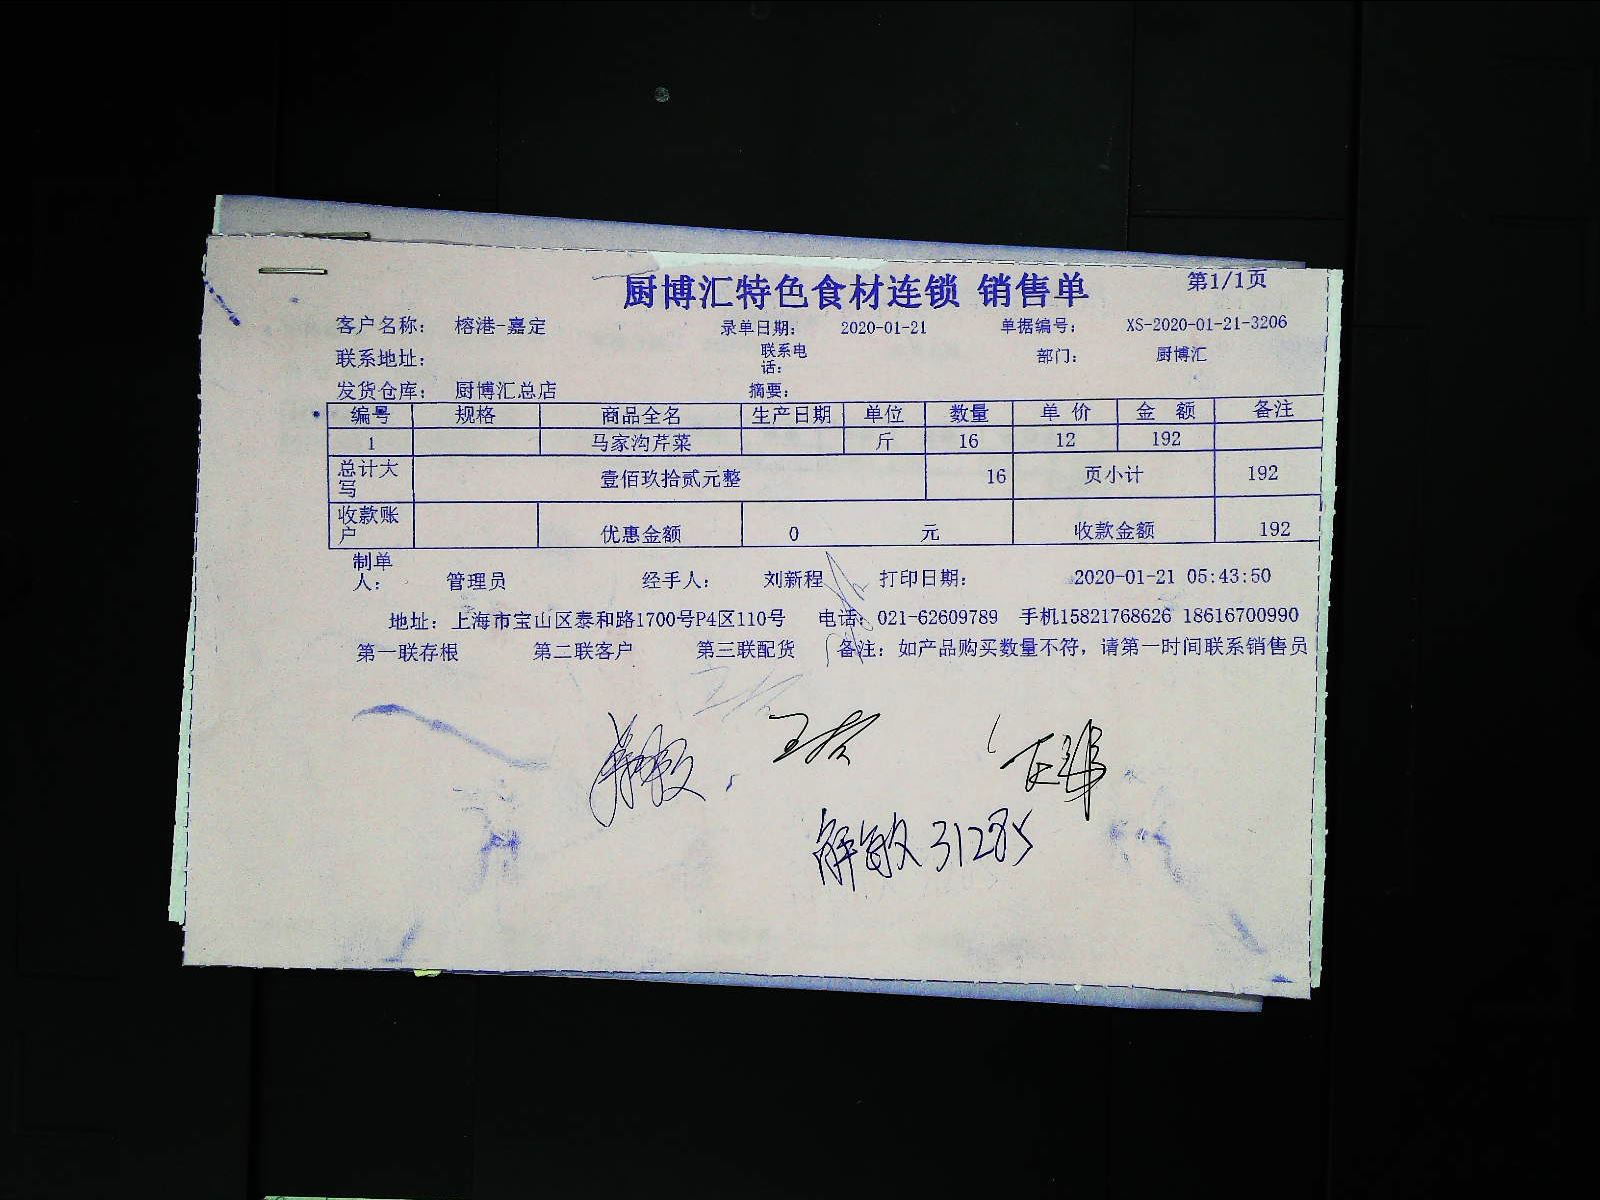 厨博汇特色食材连锁 销售单 第1/1页
客户名称： 榕港-嘉定 录单日期： 2020-01-21 单据编号： XS-2020-01-21-3206
联系地址： 联系电话： 部门： 厨博汇
发货仓库： 厨博汇总店 摘要：
编号 规格 商品全名 生产日期 单位 数量 单价 金额 备注
1 马家沟芹菜 斤 16 12 192
总计大写 壹佰玖拾贰元整 16 页小计 192
收款账户 优惠金额 0 元 收款金额 192
制单人： 管理员 经手人： 刘新程 打印日期： 2020-01-21 05:43:50
地址：上海市宝山区泰和路1700号P4区110号 电话：021-62609789 手机15821768626 18616700990
第一联存根 第二联客户 第三联配货 备注：如产品购买数量不符，请第一时间联系销售员
解敏